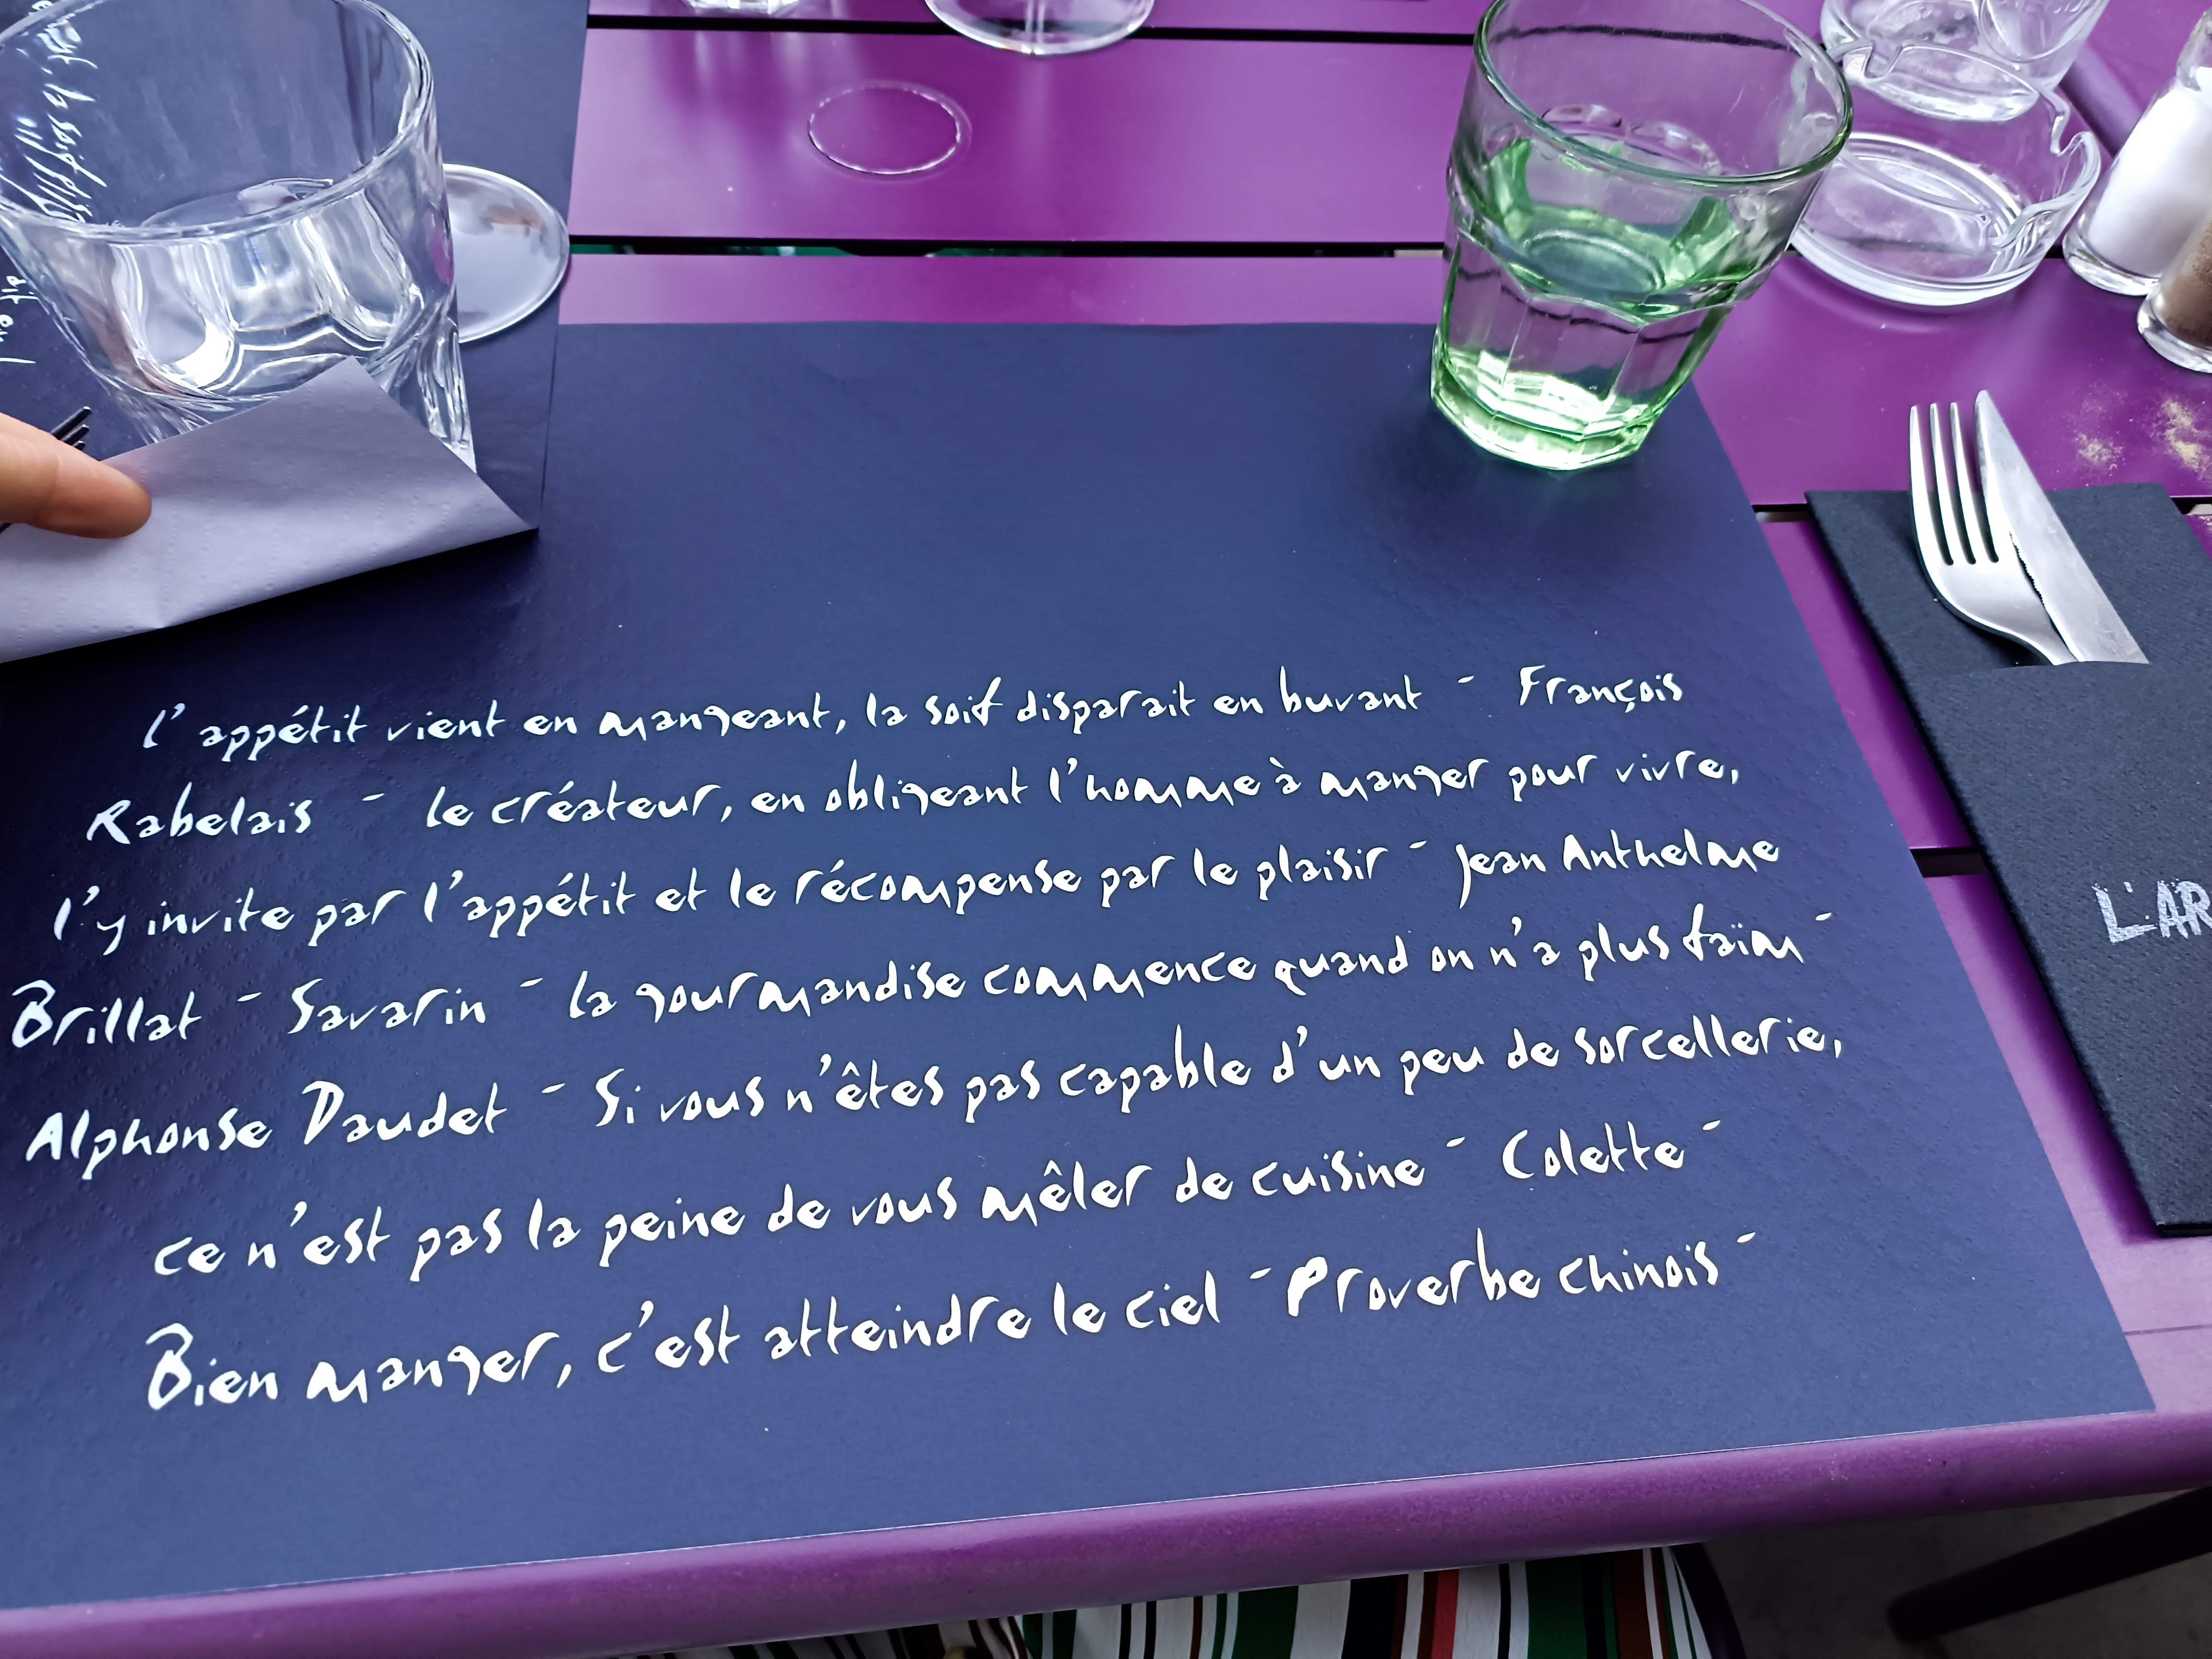 l'appétit vient en mangeant, la soif disparait en buvant - François
Rabelais - le créateur, en obligeant l'homme à manger pour vivre,
l'y invite par l'appétit et le récompense par le plaisir - Jean Anthelme
Brillat - Savarin - la gourmandise commence quand on n'a plus faïm -
Alphonse Daudet - Si vous n'êtes pas capable d'un peu de sorcellerie,
ce n'est pas la peine de vous mêler de cuisine - Colette -
Bien manger, c'est atteindre le ciel - Proverbe chinois -
L'AR